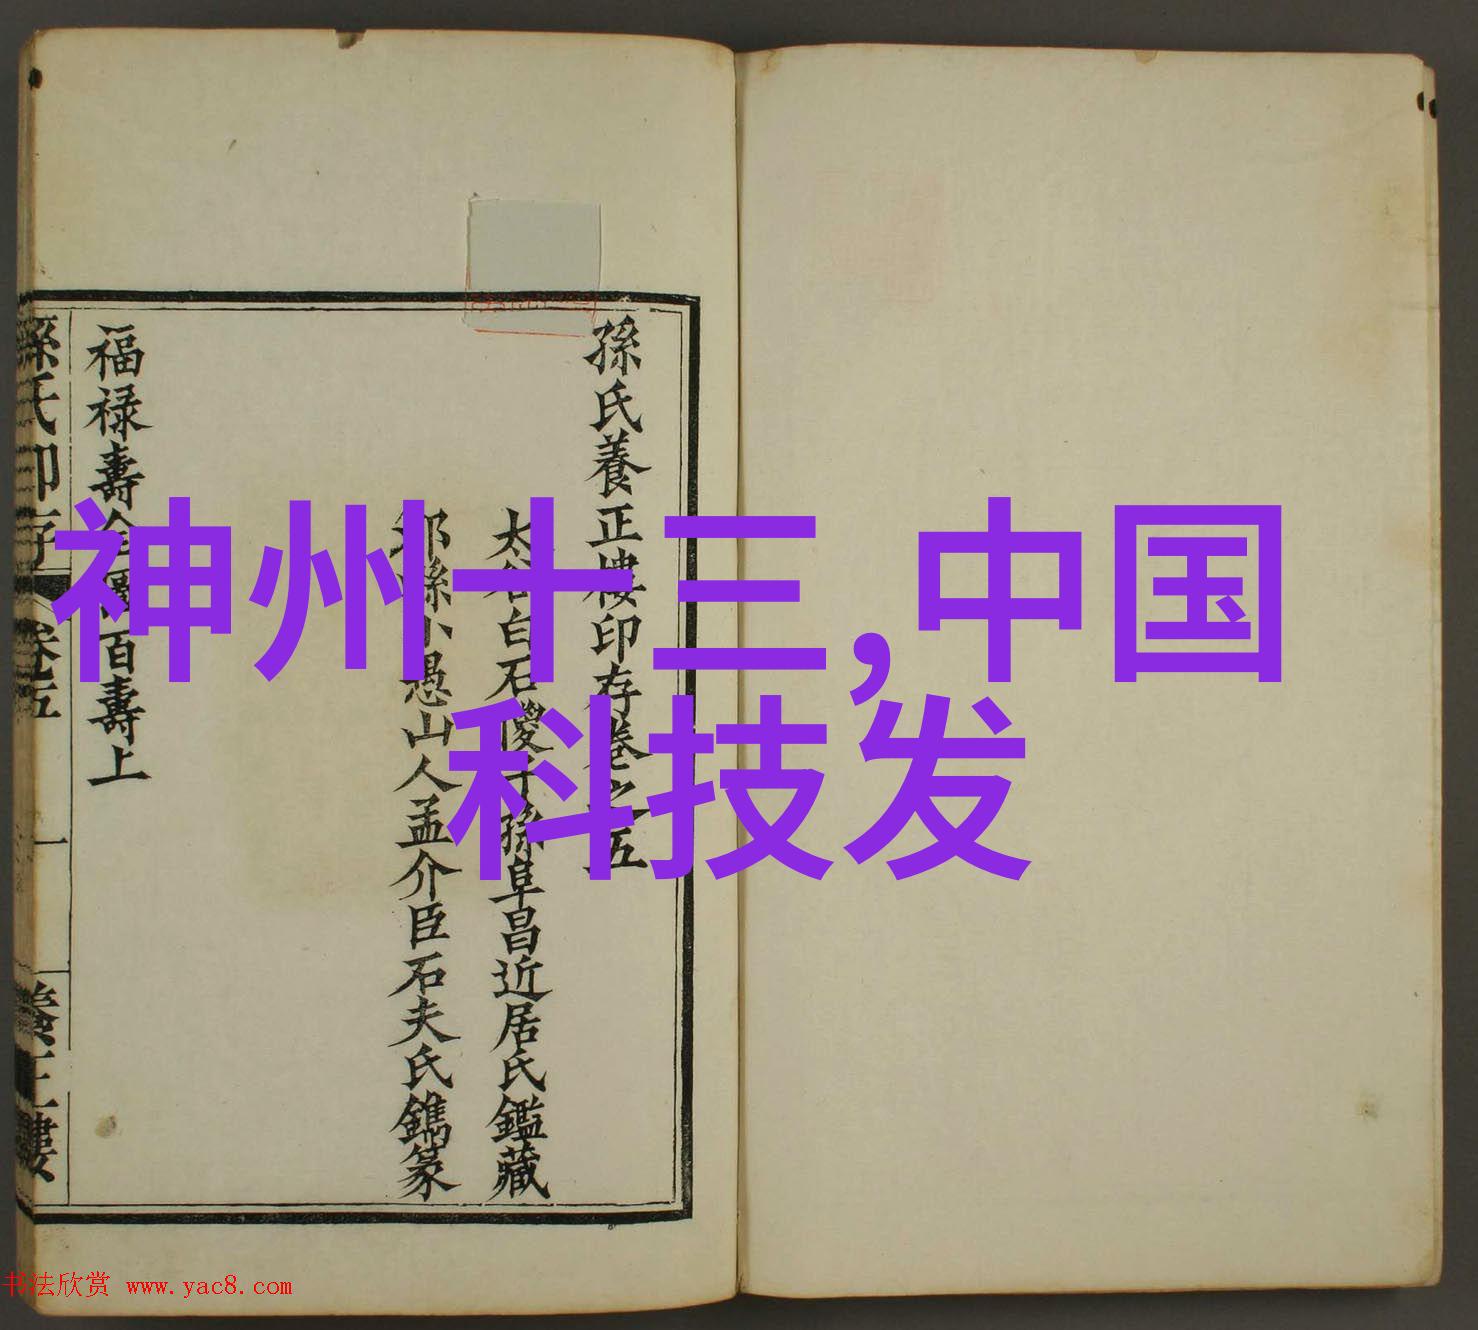 孫氏養正樓印存卷之五
太谷白石儍子孫阜昌近居氏鑑藏
邓縣小愚山人孟介臣石夫氏鐫篆
福禄壽全圖百壽上
孫氏印存
卷五
一
養正樓
神州十三,中国
科技发
书法欣赏 www.yac8.com